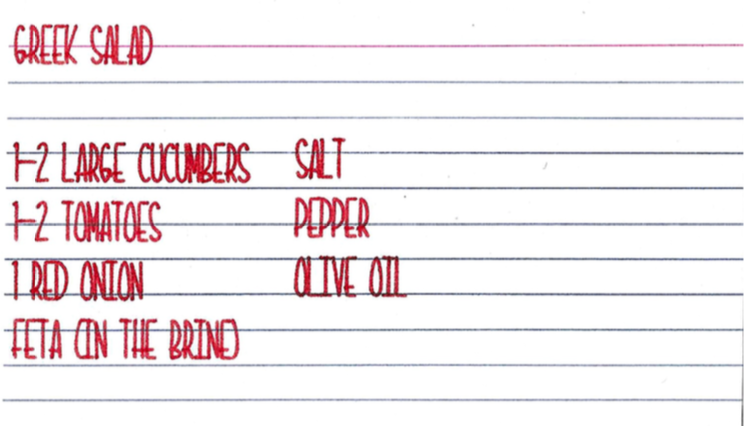 GREEK SALAD
1-2 LARGE CUCUMBERS
1-2 TOMATOES
1 RED ONION
FETA (IN THE BRINE)
SALT
PEPPER
OLIVE OIL